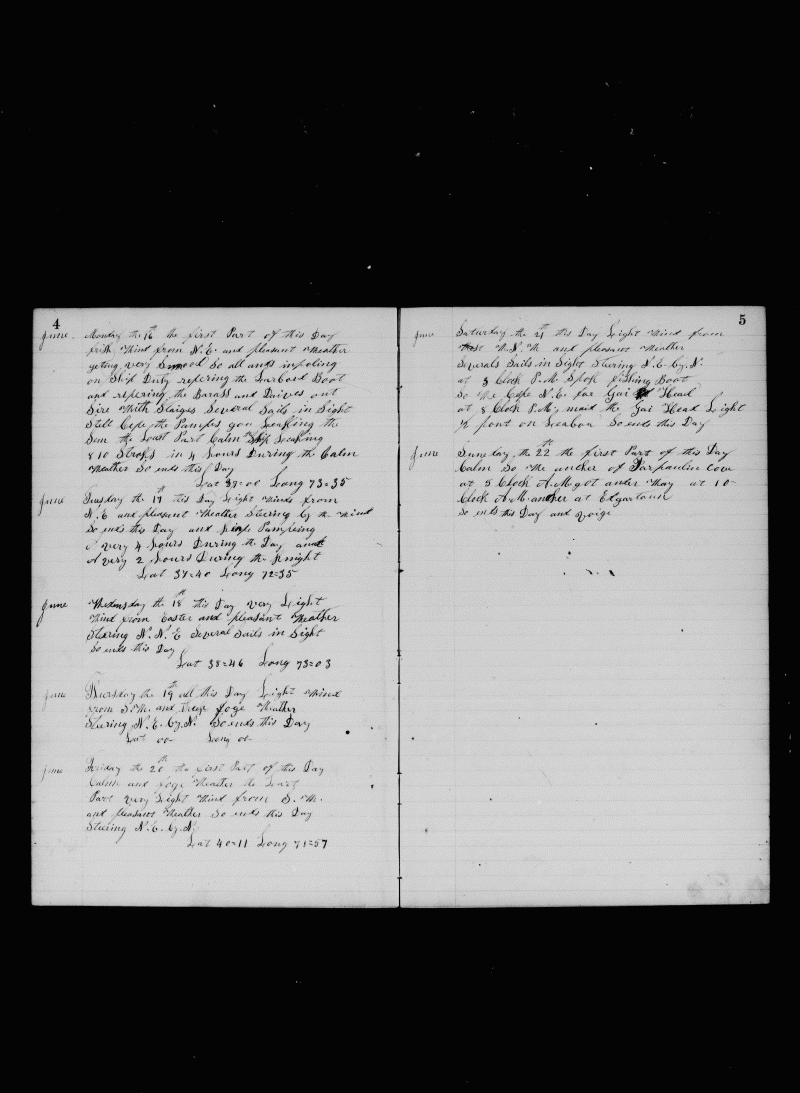 4
June. Monday the 16th the first Part of this Day
frish Wind from N.E. and pleasant Weather
geting very Smool So all ands inploing
on Ship Duty repering the Larboard Boat
and repering the Barass and Daives out
Sire With Staiges Several Sails in Sight
Still Cepe the Pamps gou Leaking the
Sem the Leart Part Calm Ship Leaking
810 Strokes in 4 hours During the Calm
Weather So ends this Day
Lat 39=00 Long 73=35
June Tuesday the 17th this Day Light Winds from
N.E and pleasant Weather Stering by the Wind
So ends this Day and Pampeing
very 4 hours During the Day and
very 2 hours During the Knight
Lat 37=40 Long 72=35
June Wedensday the 18th this Day very Light
Wind from Easter and pleasant Weather
Stering N.N.E Several Sails in Sight
So ends this Day
Lat 38=46 Long 73=03
June Thursday the 19th all this Day Light Wind
from S.W. and foge Weather
Stering N.E. by N. So ends this Day
Lat 00 Long 00
June Friday the 20th the First Part of this Day
Calm and foge Weather the Leart
Part very Light Wind from S.W.
and pleasant Weather So ends this Day
Stering N.E. by N.
Lat 40=11 Long 71=57
5
June Saturday the 21st this Day Light Wind from
W.S.W and pleasant Weather
Severals Sails in Sight Stering N.E. by N.
at 3 Clock P.M Spok fishing Boat
So We Cepe N.E. for Gai Head
at 8 Clock P.M. maid the Gai Head Light
1/2 pont on Leabou So ends this Day
June Sunday the 22 the first Part of this Day
Calm So We ancher of Tarpaulin Cow
at 5 Clock A.M got ander Way at 10
Clock A.M. ancher at Edgartown
So ends this Day and voige